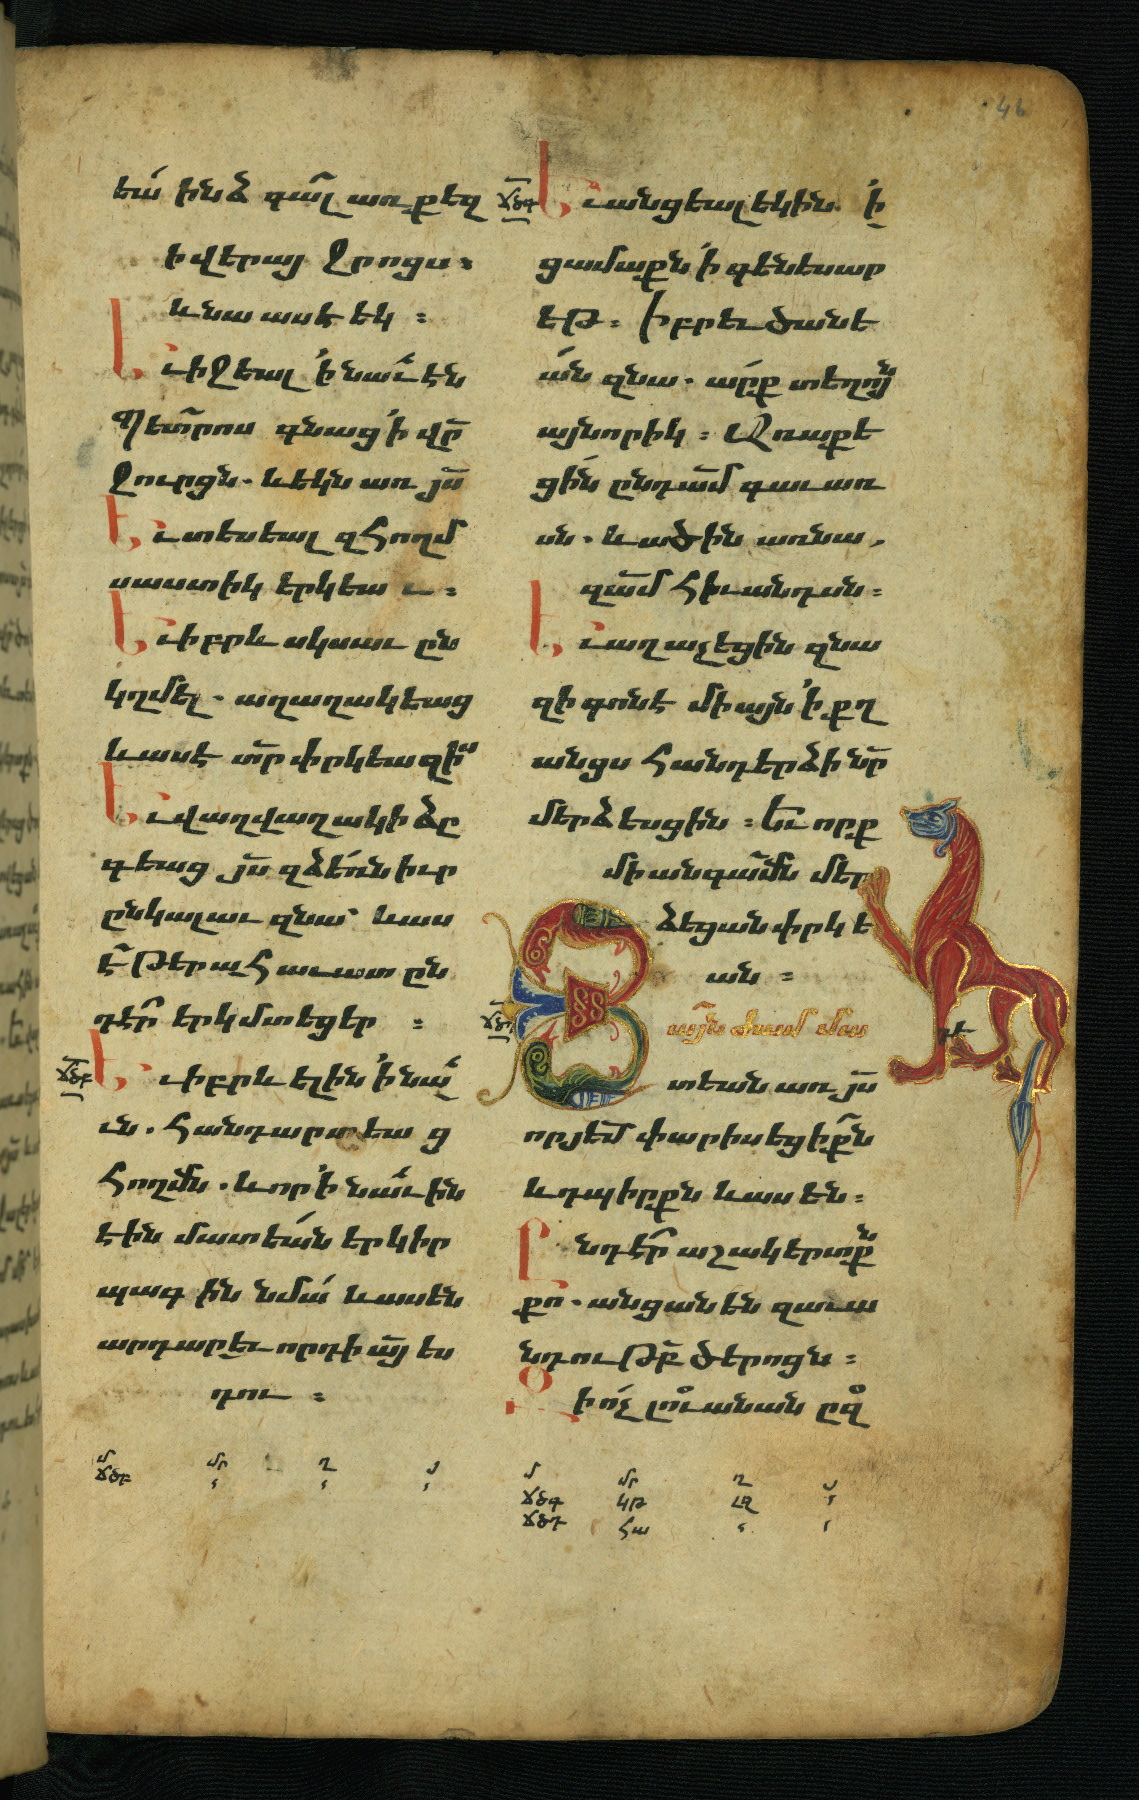 46
եա՛ ինձ գա՟լ առ քեզ
ի վերայ ջրոցս։
և նա ասէ եկ։
Եւ իջեալ ի նաւէն
Պետրոս գնաց ի վր՟
ջուրցն. և եկն առ յս՟
Եւ տեսեալ զհողմ
սաստիկ երկեաւ։
Եւ իբրև սկսաւ ըն
կղմել. աղաղակեաց
և ասէ տր՟ փրկեա զիս
Եւ վաղվաղակի ձը
գեաց յս՟ զձեռն իւր
ընկալաւ զնա՝ և աս
է՟ թերահաւատ ըն
դէր՟ երկմտեցեր։
ՃԾԲ
Եւ իբրև ելին ի նա
ւն. հանդարտեաց
հողմն. և որ ի նաւին
էին մատեան երկիր
պագին նմա՛ և ասեն
արդարեւ որդի ա՟յ ես
դու։
ՃԾԳ
Եւ անցեալ եկին ի
ցամաքն ի գենեսար
էթ։ Իբրեւ ծանե
ա՛ն զնա. արք տեղոյն
այնորիկ։ Առաքե
ցին ընդա՟մ գաւառ
սն. և ածին առ նա,
զա՟մ հիւանդսն։
Եւ աղաչեցին զնա
զի գոնէ միայն ի քղ
անցս հանդերձի նր՟
մերձեսցին։ Եւ որք
միանգամն մեր
ձեցան փրկե
ան։
ՃԾԴ
Յայն ժամ մա
տեան առ յս՟
որ յեմ՟ փարիսեցիքն
և դպիրքն և ասեն։
Ընդէր՟ աշակերտքն
քո. անցանեն զաւա
նդութբ՟ ծերոցն։
Զի ո՛չ լուանան
մ մր ղ յ
ՃԾԲ
մ մր ղ յ
ՃԾԳ ԿԹ
ՃԾԴ ՀԱ